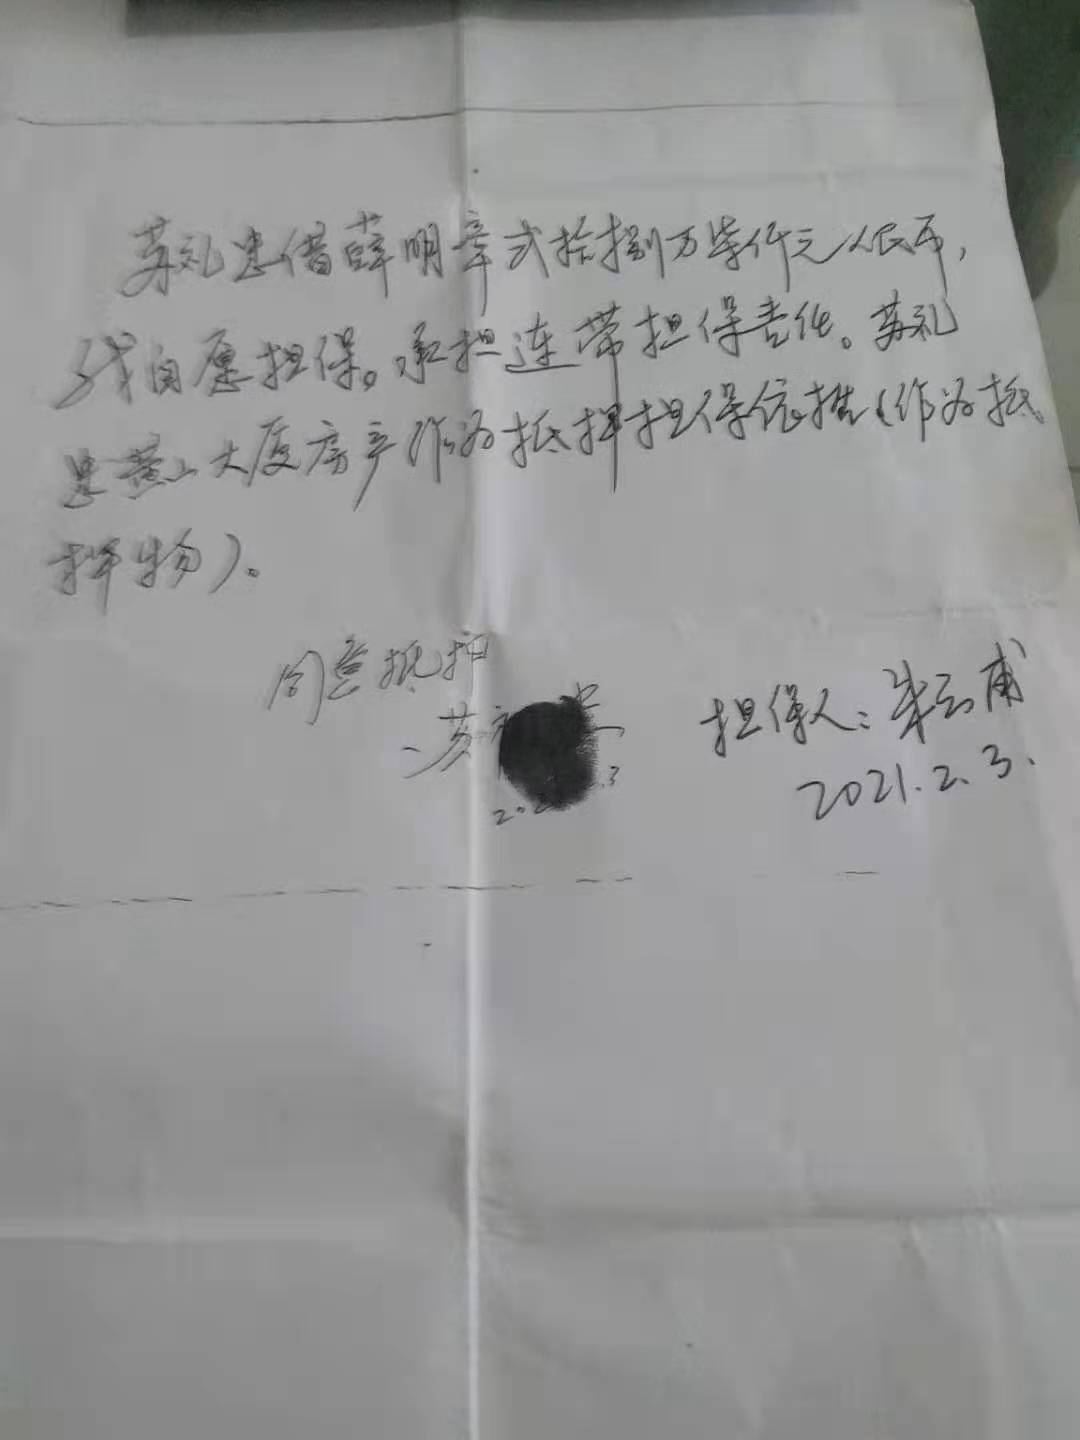 苏礼忠借薛明章弍拾捌万柒仟元人民币,
我自愿担保。承担连带担保责任。苏礼
忠黄山大厦房产作为抵押担保依据(作为抵
押物)。
同意抵押
苏
担保人:朱云甫
2021.2.3.